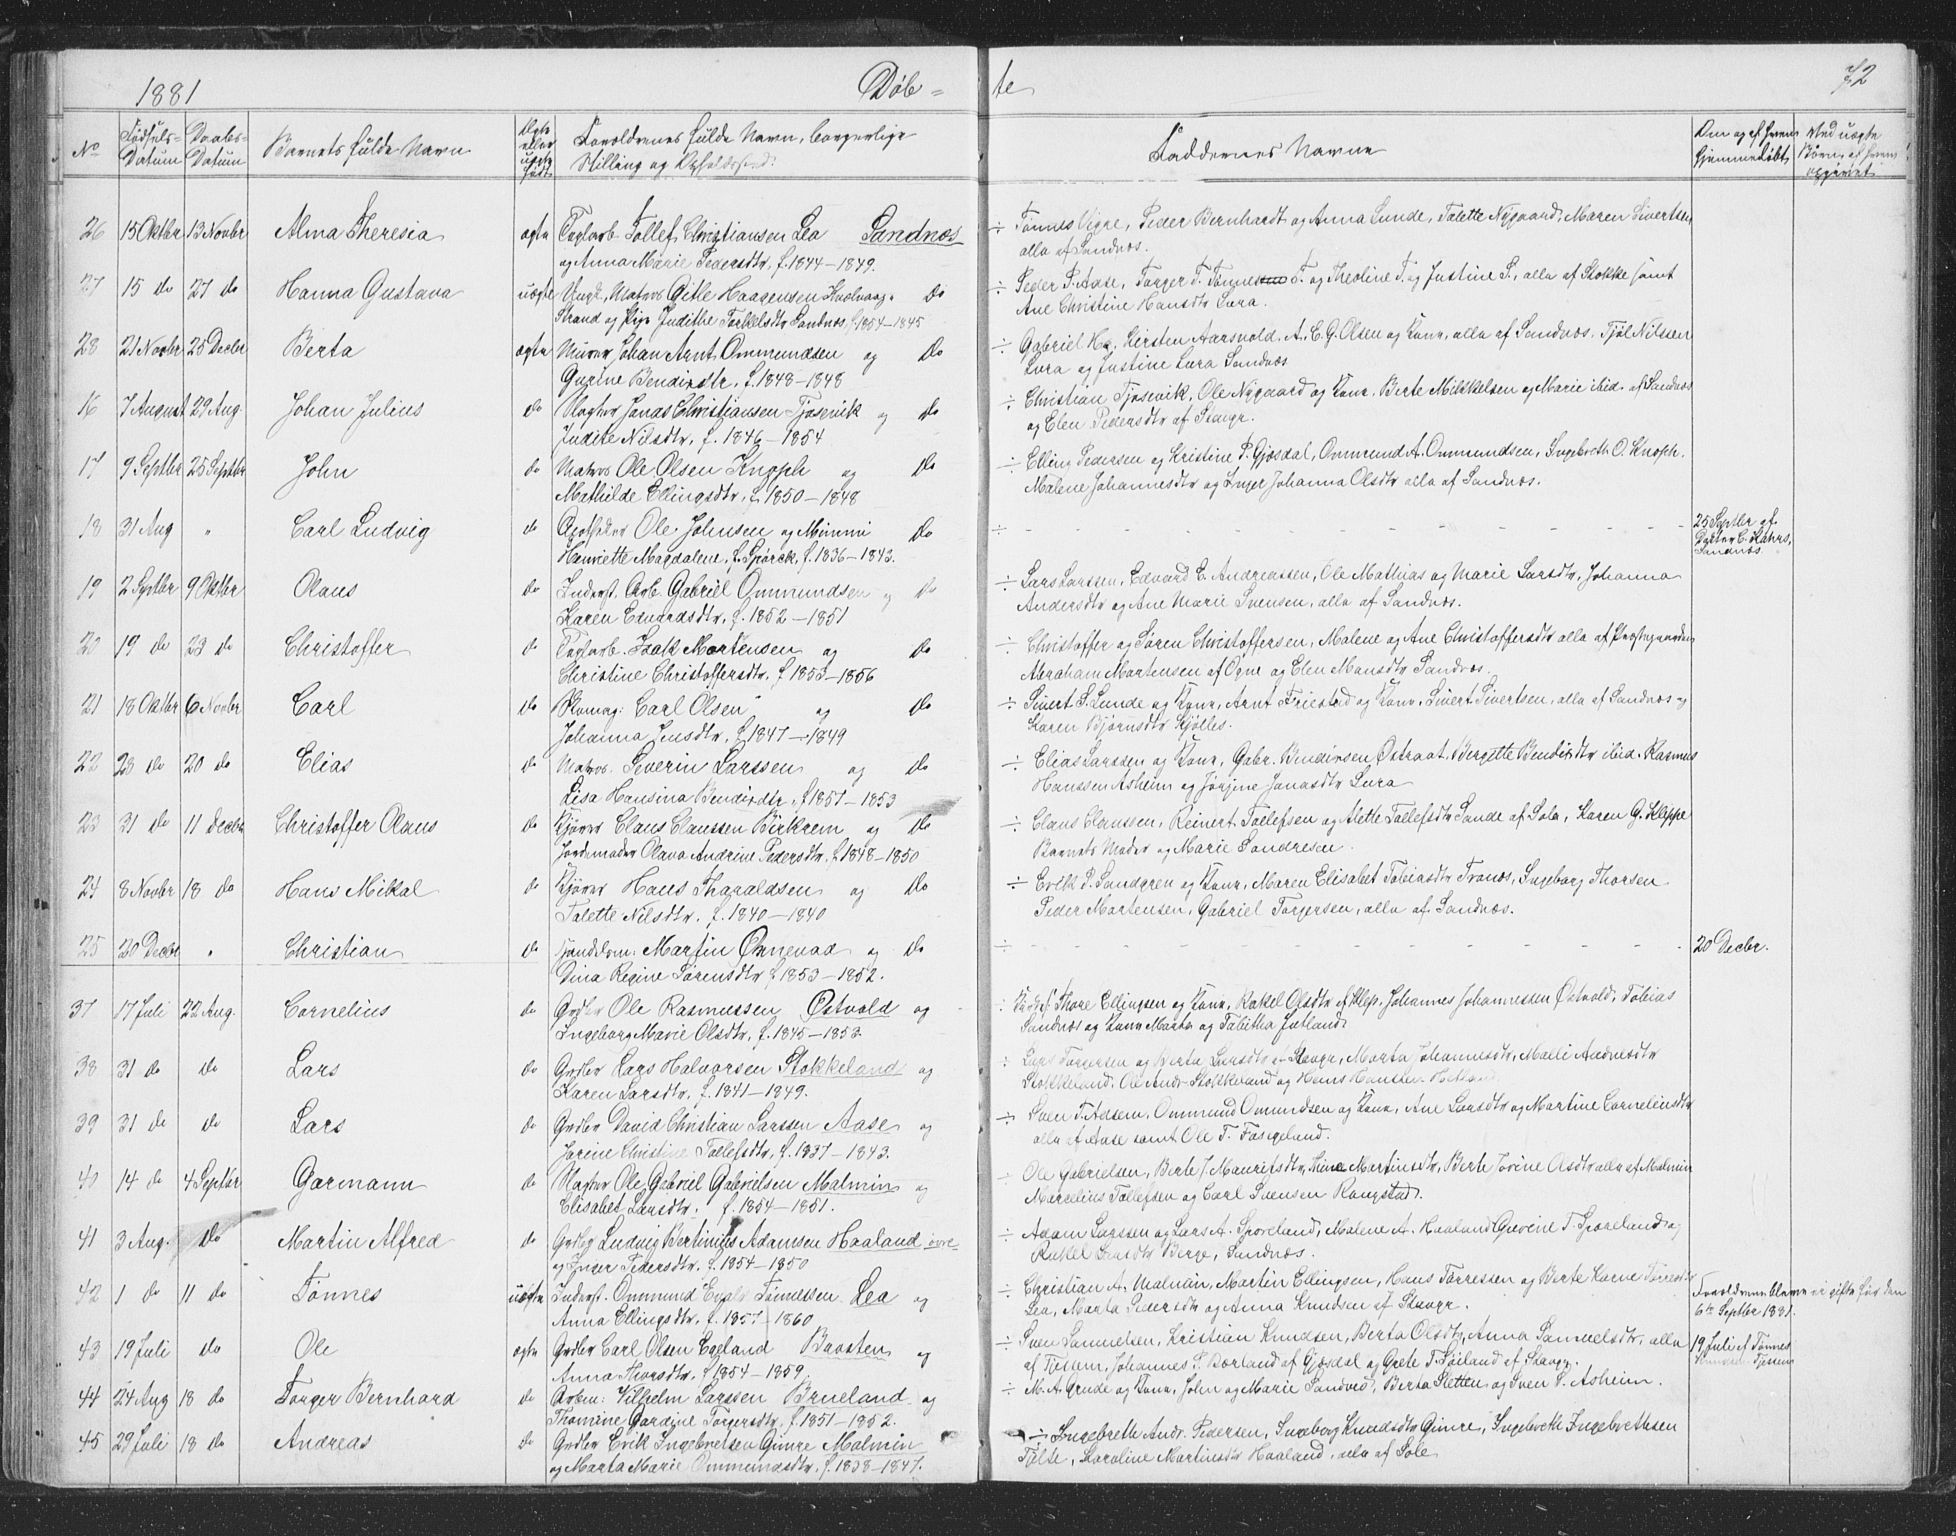 1881 Döb = te 72
No Födsels= Datum Daabs= Datum Barnets fulde Navn Ægte eller uægte født Forældrenes fulde Navn, borgerlige Stilling og Opholdssted. Faddernes Navne Om og af hvem hjemmedöbt Ved uægte Börn, af hvem opgivet
26 15 Oktbr 13 Novbr Alma Theresia ægte Teglarb. Tollef Christiansen Lea Sandnæs ÷ Tønnes Vigre, Peder Bernhardt og Anna Lunde, Talette Nygaard, Maren Sivertsen
og Anna Marie Pedersdtr, f. 1844–1849. alle af Sandnæs.
27 15 do 27 do Hanna Gustava uægte Ungk. Matros Gitle Haagensen Do ÷ Peder P. Aase, Torger T. T. og Theoline T. og Justine P., alle af Stokke samt
Strand og Pige Judithe Torkelsdtr Sandnæs, f. 1854–1845 Ane Christine Hansdtr Lura.
28 21 Novbr 25 Decbr Berta ægte Murer Johan Arnt Ommundsen og Do ÷ Gabriel H. Kirsten Aarsvold, A. C. G. Olsen og Kone, alle af Sandnæs. Tjøl Nilsen
Gurine Bendixdtr. f. 1848–1848 Lura og Justine Lura Sandnæs
16 7 August 29 Aug. Johan Julius do Slagter Jonas Christiansen Tjosevik og do ÷ Christian Tjosevik, Ole Nygaard og Kone, Berte Mikkelsen og Marie ibid. af Sandnæs
Judite Nilsdtr, f. 1846–1854 og Elen Pedersdtr af Stavgr.
17 9 Septbr 25 Septbr John do Matros Ole Olsen Knoph og Do ÷ Elling Pedersen og Kristine P. Gjæsdal, Ommund A. Ommundsen, Ingebreth O. Knoph.
Mathilde Ellingsdtr, f. 1850–1848 Malene Johannesdtr og Inger Johanna Olsdtr alle af Sandnæs.
18 31 Aug " Carl Ludvig do Apotheker Ole Johnsen og Mimmi Do ÷ 25 Septbr af
Henriette Magdalene, f. Spörck, f. 1836–1843. Doktor C. Kahrs, Sandnæs.
19 2 Septbr 9 Oktbr Olaus do Inderst. Arb. Gabriel Ommundsen og do ÷ Lars Larssen, Edvard E. Andreassen, Ole Mathias og Marie Larsdtr, Johanna
Karen Edvardsdtr, f. 1852–1851 Andersdtr og Ane Marie Svensen, alle af Sandnæs.
20 19 do 23 do Christoffer do Teglarb. Isak Mortensen og Do ÷ Christoffer og Søren Christoffersen, Malene og Ane Christoffersdtr alle af Præstegaarden
Christine Christoffersdtr, f. 1853–1856 Abraham Mortensen af Ogne og Elen Mansdtr Sandnæs.
21 18 Oktbr 6 Novbr Carl do Skomag: Carl Olsen og do ÷ Sivert S. Lunde og Kone, Arnt Friestad og Kone, Sivert Sivertsen, alle af Sandnæs og
Johanna Jensdtr, f. 1847–1849 Karen Bjørnsdtr Kjölles.
22 28 do 20 do Elias do Matros. Severin Larssen og do ÷ Elias Larssen og Kone, Gabr. Bendixsen Østraat, Bergitte Bendixdtr ibid. Rasmus
Lisa Hansina Bendixdtr, f. 1851–1853 Hanssen Asheim og Jörgine Jonasdtr Lura
23 31 do 11 Decbr Christoffer Olaus do Kjører Claus Claussen Birkrem og do ÷ Claus Claussen, Reinert Tollefsen og Alette Tollefsdtr Sande af Sole, Karen G. Kleppe
Jordemoder Olava Andrine Pedersdtr, f. 1848–1850 Barnets Moder og Marie Sandresen.
24 8 Novbr 18 do Hans Mikal do Kjører Hans Tharaldsen og do ÷ Erik P. Sandgren og Kone, Maren Elisabet Tobiasdtr Tronæs, Ingeborg Thorsen
Talette Nilsdtr. f. 1840–1840 Peder Mortensen, Gabriel Torgersen, alle af Sandnæs.
25 20 Decbr " Christian do Handelsm. Martin Ognevad og do ÷ 20 Decbr.
Dina Regine Sørensdtr f. 1853–1852.
37 17 Juli 22 Aug. Cornelius do Grdbr Ole Rasmussen Østvold og ÷ Thore Ellingsen og Kone, Rakel Olsdtr af Klep, Johannes Johannessen Østvold, Tobias
Ingeborg Marie Olsdtr, f. 1845–1853 Sandnæs og Kone Marta og Tabitha Jutland
38 31 do do Lars do Grdbr Lars Halvorsen Stokkeland og ÷ Lars Torgersen og Berta Larsdtr af Stavgr, Marta Johannesdtr, Malli Andreasdtr
Karen Larsdtr, f. 1841–1849. Stokkeland, Ole Andr. Stokkeland og Hans Hanssen Hetland.
39 31 do do Lars do Grdbr David Christian Larssen Aase og ÷ Sven T. Adsem, Ommund Omundsen og Kone, Ane Larsdtr og Martine Corneliusdtr
Jorine Christine Tollefsdtr, f. 1837–1843. alle af Aase samt Ole T. Foss-Eigeland.
40 14 do 4 Septbr Garmann do Slagter Ole Gabriel Gabrielsen Malmin og ÷ Ole Gabrielsen, Berte J. Mauritsdtr, Mine Martinsdtr, Berte Jorine Olsdtr alle af Malmin
Elisabet Larsdtr. f. 1854–1851. Marcelius Tollefsen og Carl Svensen Rangstad.
41 3 Aug. do Martin Alfred do Grdbr Ludvig Bertinius Adamsen Haaland övre ÷ Adam Larssen og Lars A. Skjoreland, Malene A. Haaland, Gurine T. Skjoreland og
og Inger Pedersdtr. f. 1854–1850 Rakel Larsdtr Berge, Sandnæs.
42 1 do 11 do Tønnes uægte Inderst. Ommund Evald Tønnessen Lea og ÷ Christian A. Malmin, Martin Ellingsen, Hans Torressen og Berte Karne Torresdtr Forældrene bleve ei gifte för den
Anna Ellingsdtr, f. 1857–1860 Lea, Marta Pedersdtr og Anna Knudsen af Stavgr. 6te Septbr 1881.
43 19 Juli do Ole ægte Grdbr Carl Olsen Egeland Braasten og ÷ Sven Samuelsen, Kristian Knudsen, Berta Olsdtr, Anna Samuelsdtr, alle 19 Juli af Tønnes
Anna Thorsdtr, f. 1854–1859. af Tjessem, Johannes S. Borland af Gjæsdal og Grete T. Søiland af Stavgr.
44 24 Aug 18 do Torger Bernhard do Vilhelm Larssen Brueland og ÷ M. A. Grude og Kone, John og Marie Sandved, Berta Sletten og Sven S. Asheim.
Thomine Gardine Torgersdtr, f. 1851–1852.
45 29 Juli 18 do Andreas do Grdbr Erik Ingebretsen Gimre Malmin ÷ Ingebreth Andr. Pedersen, Ingeborg Knudsdtr Gimre, Ingebreth Ingebrethsen
og Marta Marie Ommundsdtr, f. 1838–1847. Tjelse, Karoline Martinsdtr Haaland, alle af Sole